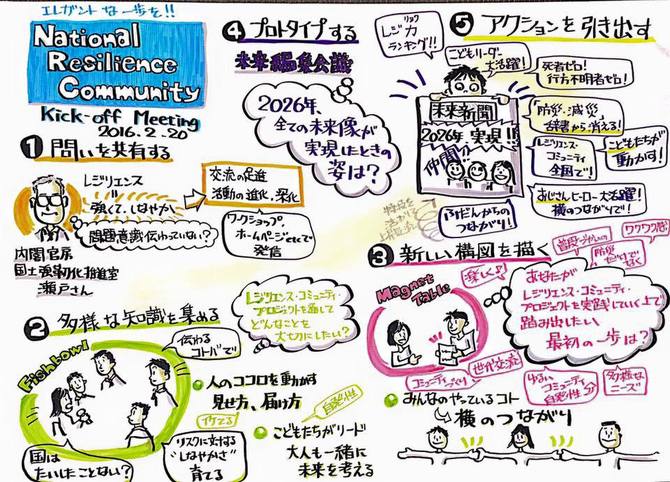 エレガントな一歩を!!
National
Resilience
Community
Kick-off Meeting
2016.2.20
1 問いを共有する
レジリエンス
=
強くて、しなやか
問題意識伝わっていない?
内閣官房
国土強靭化推進室
瀬戸さん
交流の促進
活動の進化、深化
ワークショップ、
ホームページetcで
発信
2 多様な知識を集める
Fishbowl
伝わる
コトバで
国は
たいしたことない?
リスクに対する
"しなやかさ"
育てる
レジリエンス・コミュニティ・
プロジェクトを通して
どんなことを
大切にしたい?
人のココロを動かす
見せ方、届け方
自発性
こどもたちがリード
大人も一緒に
未来を考える
4 プロトタイプする
未来編集会議
2026年、
全ての未来像が
実現したときの
姿は?
5 アクションを引き出す
レジリョク
レジ力
ランキング!!
こどもリーダー
大活躍!
死者ゼロ!
行方不明者ゼロ!
未来新聞
2026年 実現!!
防災・減災、
辞書から消える!
レジリエンス・
コミュニティ
全国で!
こどもたちが
動かす!
おじさんヒーロー大活躍!
横のつながりで!
ふだんからの
つながり!
3 新しい構図を描く
ワクワク感
防災
だけで
楽しく♪
Magnet
Table
あなたが
レジリエンス・コミュニティ・
プロジェクトを実践していく上で
踏み出したい
最初の一歩は?
世代交流
コミュニティづくり
ゆるい
コミュニティ
自発性
多様な
ニーズ
みんなのやっているコト
横のつながり